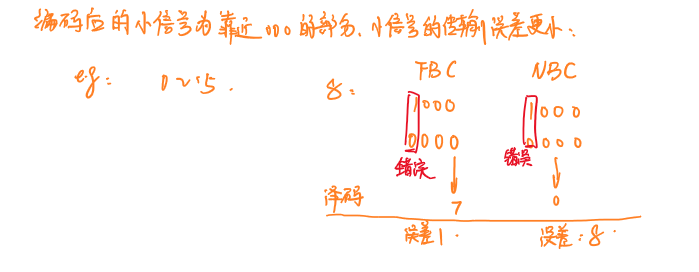 编码后的小信号为靠近000的部分，小信号的传输误差更小：
e.g: 0~15.
8:
FBC NBC
1000 1000
0000 0000
错误 错误
译码 7 0
误差1. 误差:8.